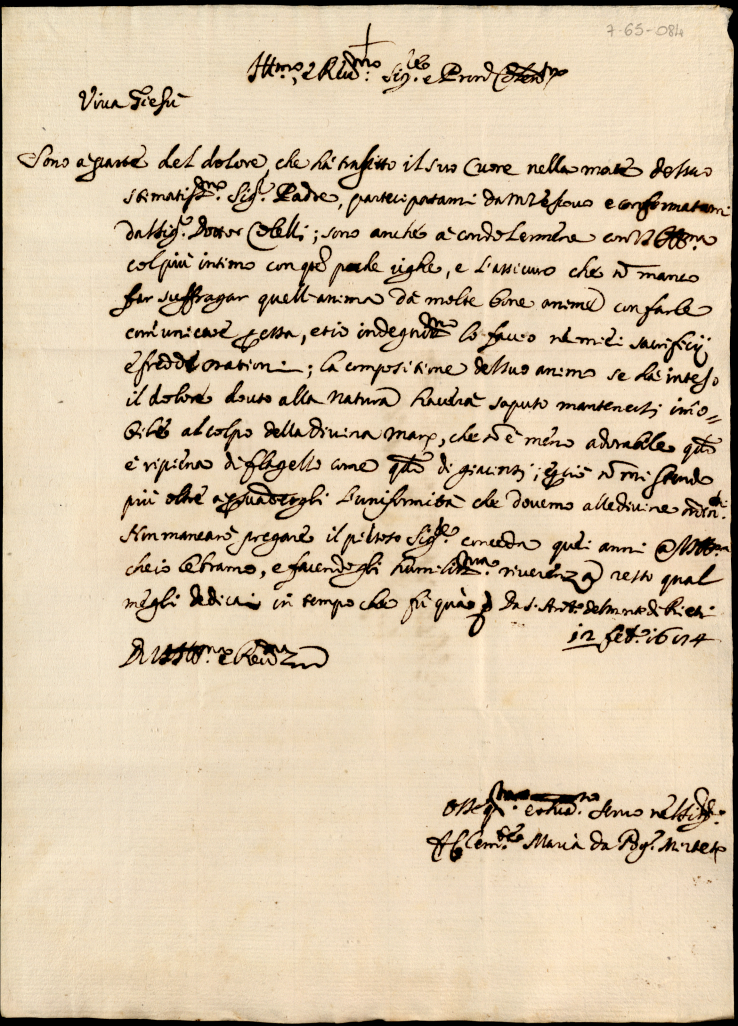 7-65-084
Ill.mo, e Rev.mo Sig.re e Pron Colend.mo
Viva Giesù
Sono à parte del dolore, che hà trafitto il suo Cuore nella morte del suo
stimatiss.mo Sig.r Padre, partecipatami da e confermatami
dal Sig.r Dottor Celelli; sono anche à condolermene con V.S. Ill.ma
col più intimo con q.te poche righe, e l'assicuro che nō manco
far suffragar quell'anima da molte bone anime con farle
comunicare p essa, et io indegnam.te lo faccio ne miei sacrificij
e fredde orationi; la compositione del suo animo se hà inteso
il dolore dovuto alla natura haverà saputo mantenersi immo=
bile al colpo della divina mano, che nō è meno adorabile q.do
è ripiena di flagelli come q.do di giacinti; nō mi stendo
più oltre à l'uniformità che dovemo alle divine
Non mancarò pregare il pietoso Sig.re conceda quei anni à V.S. Ill.ma
che io le bramo, e facendogli humiliss.ma riverenza resto qual
me gli dedicai in tempo che fù quà Da S. Ant.o del Monte di Rieti
12 feb.o 1674
Di V.S. Ill.ma e Rev.ma
Servo nel Sig.re
F. Clem.te Maria da Pog.o Mirteto